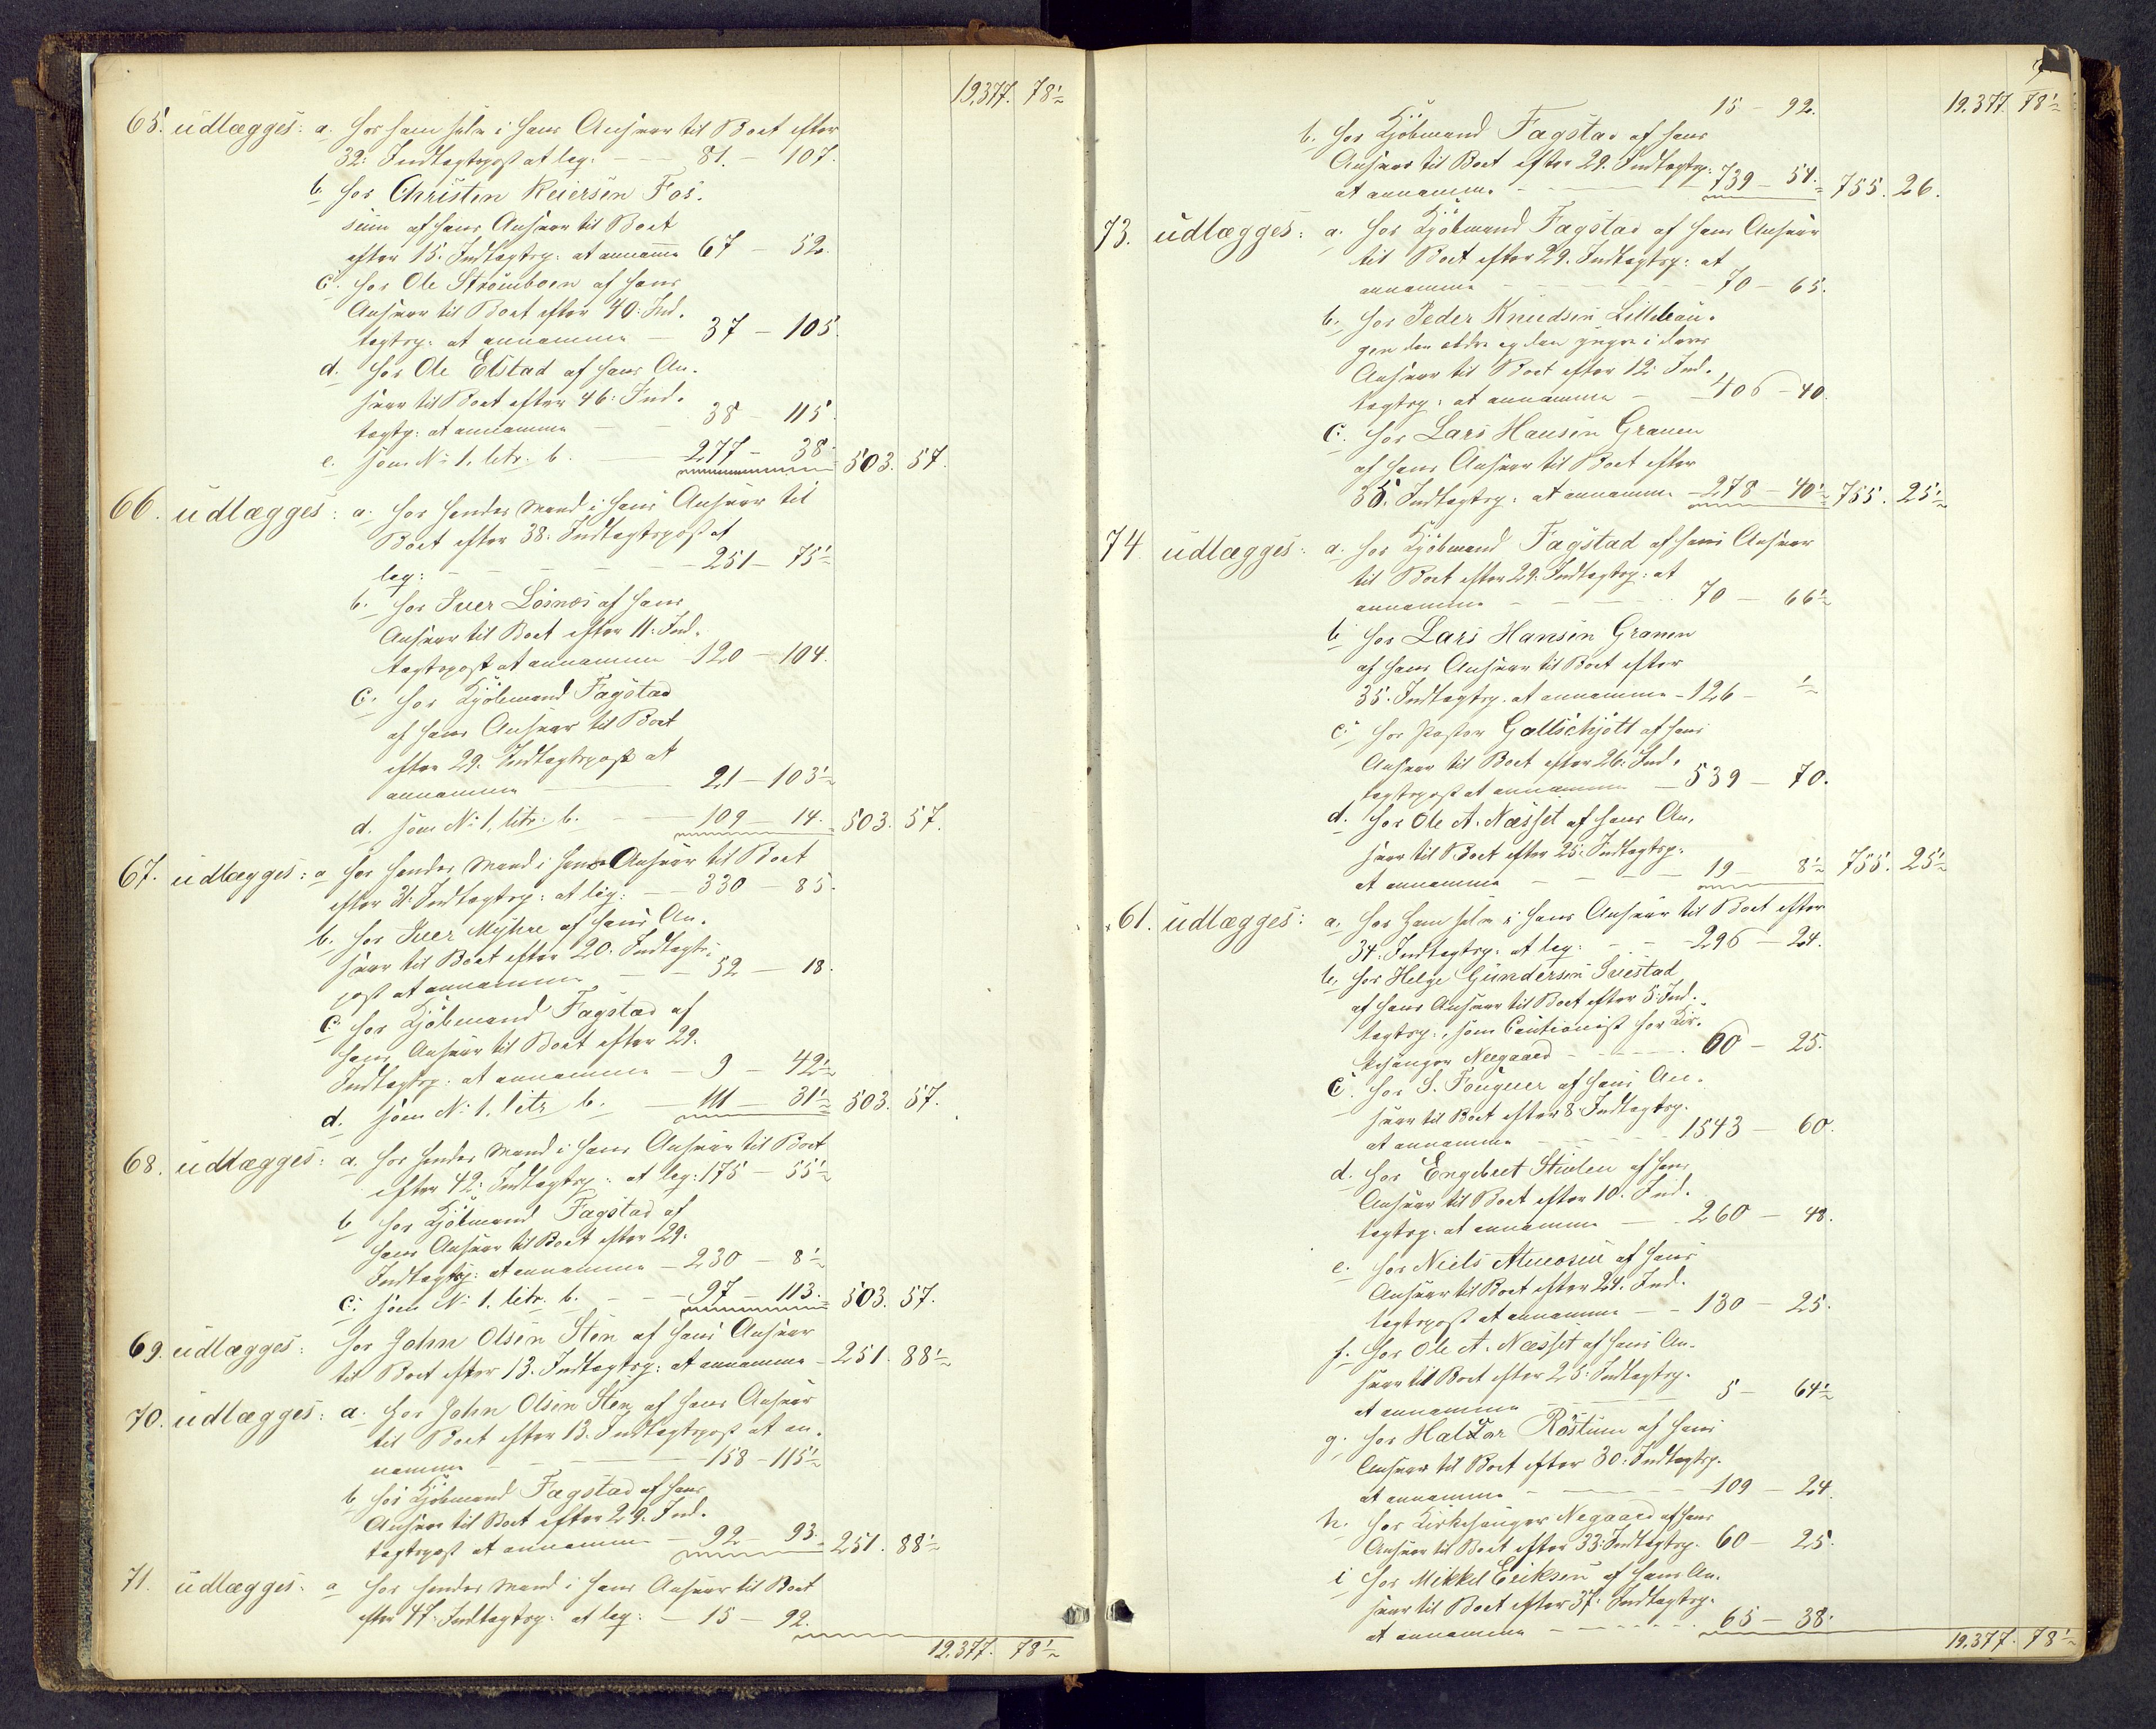 19,377. 78½
65. udlægges: a. hos ham selv i hans Ansvar til Boet efter
32: Indtægtspost at læg: — — 81. — 107.
b. hos Christen Reiersen Fos-
sum af hans Ansvar til Boet
efter 15. Indtægtsp: at annamme 67 — 52.
c. hos Ole Strömboen af hans
Ansvar til Boet efter 40: Ind-
tægtsp: at annamme — 37 — 105.
d. hos Ole Elstad af hans An-
svar til Boet efter 46: Ind-
tægtsp: at annamme — — 38 — 115.
e. som No 1. litr. b. — 277 — 38. 503. 57.
66. udlægges: a. hos hendes Mand i hans Ansvar til
Boet efter 38: Indtægtspost at
læg: — — — — 251 — 75½
b. hos Iver Lösnæs af hans
Ansvar til Boet efter 11: Ind-
tægtspost at annamme 120 — 104.
c. hos Kjöbmand Fagstad
af hans Ansvar til Boet
efter 29. Indtægtspost at
annamme — 21 — 103½
d. som No 1. litr. b. — 109 — 14. 503. 57.
67. udlægges: a hos hendes Mand i hans Ansvar til Boet
efter 31: Indtægtsp: at læg: — 330 — 85.
b. hos Iver Myhre af hans An-
svar til Boet efter 20. Indtægts-
post at annamme — — 52 — 18.
c. hos Kjöbmand Fagstad af
hans Ansvar til Boet efter 29.
Indtægtsp: at annamme — 9 — 42½
d. som No 1. litr b. — 111 — 31½ 503. 57.
68. udlægges: a. hos hendes Mand i hans Ansvar til Boet
efter 42: Indtægtsp: at læg: 175 — 55½
b hos Kjöbmand Fagstad af
hans Ansvar til Boet efter 29:
Indtægtsp: at annamme — 230 — 8½
c. som No 1. litr. b. — — 97 — 113. 503. 57.
69. udlægges: hos John Olsen Sten af hans Ansvar
til Boet efter 13. Indtægtsp: at annamme — 251. 88½
70. udlægges: a. hos John Olsen Sten af hans Ansvar
til Boet efter 13. Indtægtspost at an-
namme — — — — 158 — 115½
b hos Kjöbmand Fagstad af hans
Ansvar til Boet efter 29. Ind-
tægtspost at annamme — 92 — 93. 251. 88½
71. udlægges: a hos hendes Mand i hans Ansvar til Boet
efter 47: Indtægtsp: at læg: — 15 — 92.
19,377. 78½
15 — 92. 19,377. 78½
b. hos Kjöbmand Fagstad af hans
Ansvar til Boet efter 29. Indtægtsp:
at annamme — — 739 — 54. 755. 26.
73. udlægges: a. hos Kjöbmand Fagstad af hans Ansvar
til Boet efter 29. Indtægtsp: at
annamme — — — — 70 — 65.
b. hos Peder Knudsen Lillehau-
gen den ældre og den yngre i deres
Ansvar til Boet efter 12: Ind-
tægtsp: at annamme — 406 — 40.
c. hos Lars Hansen Granen
af hans Ansvar til Boet efter
35. Indtægtsp: at annamme — 278 — 40½ 755. 25½
74. udlægges: a. hos Kjöbmand Fagstad af hans Ansvar
til Boet efter 29. Indtægtsp: at
annamme — — — — 70 — 66½
b hos Lars Hansen Granen
af hans Ansvar til Boet efter
35. Indtægtsp. at annamme — 126 — ½
c. hos Pastor Gottschjött af hans
Ansvar til Boet efter 26: Ind-
tægtspost at annamme — 539 — 70.
d. hos Ole A. Næsset af hans An-
svar til Boet efter 25: Indtægtsp.
at annamme — — — 19 — 8½ 755. 25½
61. udlægges: a, hos ham selv i hans Ansvar til Boet efter
34. Indtægtsp: at læg: — — 296 — 24.
b, hos Helge Gundersen
af hans Ansvar til Boet efter 5: Ind-
tægtsp:, som Cautionist for Kir-
kesanger Neegaard — — — 60 — 25.
c. hos S. Fougner af hans An-
svar til Boet efter 8: Indtægtsp.
at annamme — — — 1543 — 60.
d. hos Engebret Stulen af hans
Ansvar til Boet efter 10. Ind-
tægtsp: at annamme — 260 — 48.
e. hos Niels af hans
Ansvar til Boet efter 24. Ind-
tægtspost at annamme — — 130 — 25.
f. hos Ole A. Næsset af hans An-
svar til Boet efter 25: Indtægtsp.
at annamme — — — 5 — 64½
g. hos Haldor Röstum af hans
Ansvar til Boet efter 30: Indtægtsp.
at annamme — — — 109 — 24.
h. hos Kirkesanger Negaard af hans
Ansvar til Boet efter 33: Indtægtsp. 60 — 25.
i hos Mikkel Eriksen af hans An-
svar til Boet efter 37: Indtægtsp.
at annamme — — — 65 — 38.
19,377. 78½